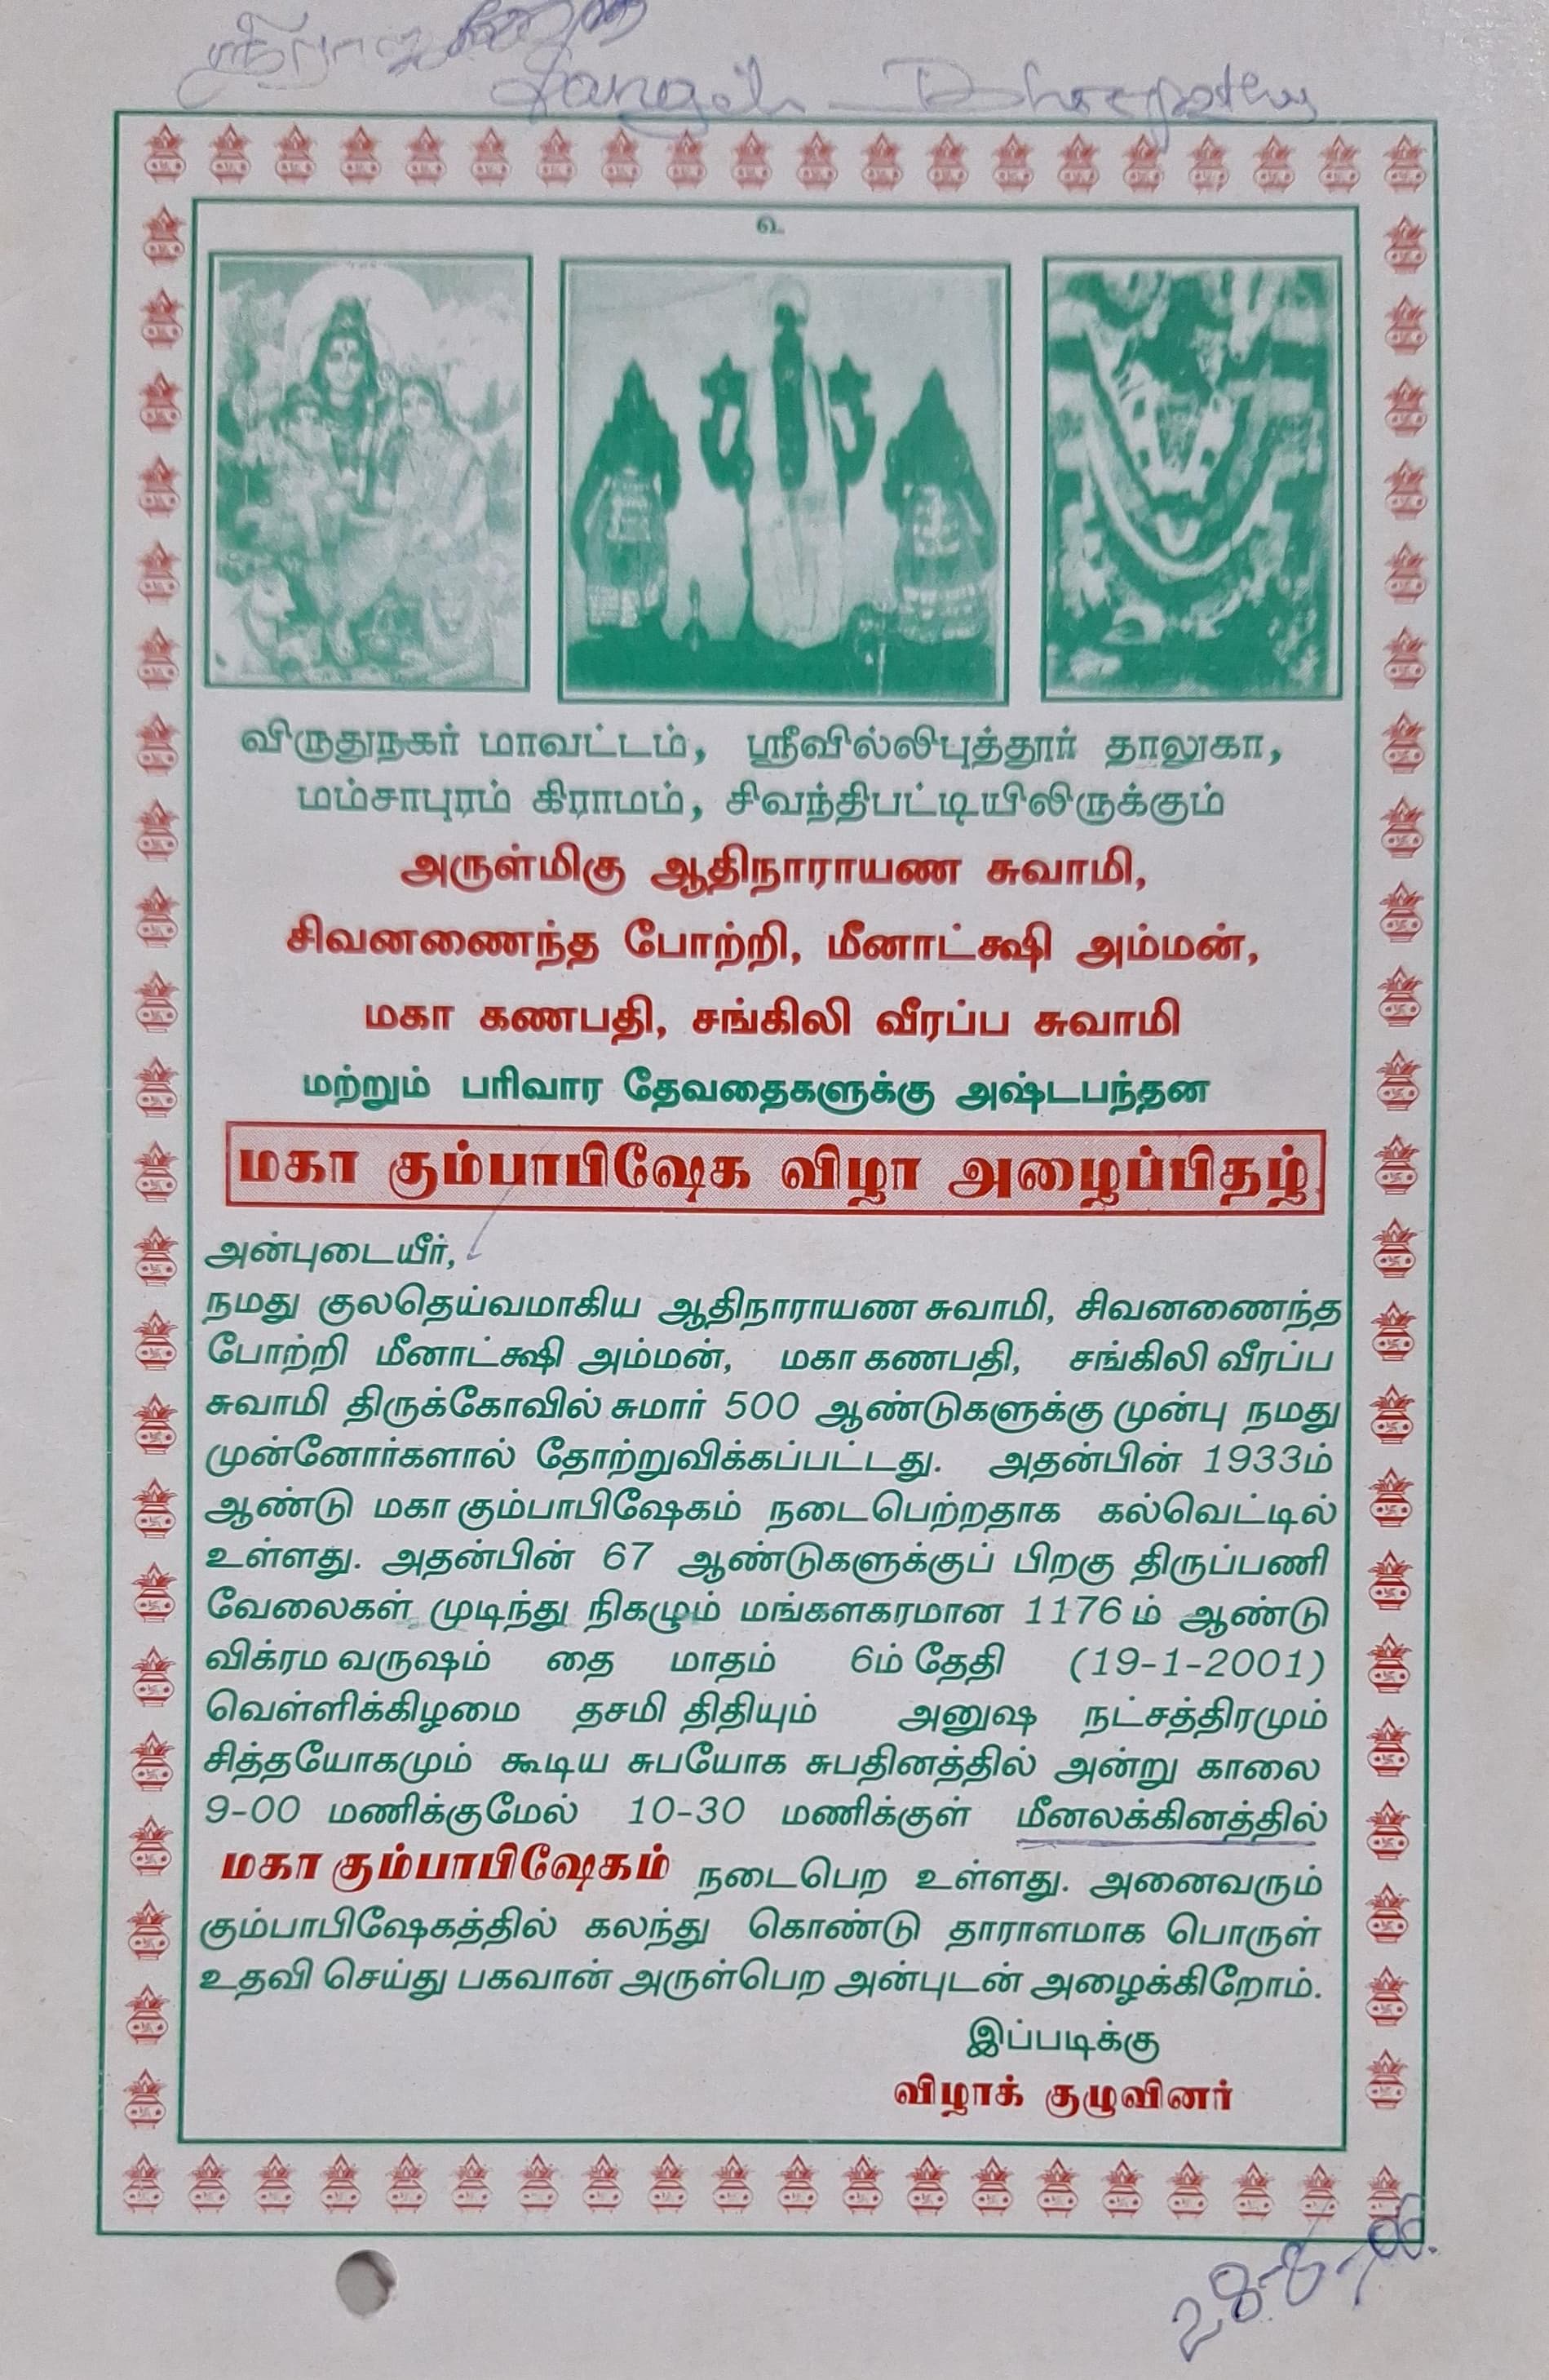 உ
விருதுநகர் மாவட்டம், ஸ்ரீவில்லிபுத்தூர் தாலுகா,
மம்சாபுரம் கிராமம், சிவந்திபட்டியிலிருக்கும்
அருள்மிகு ஆதிநாராயண சுவாமி,
சிவனணைந்த போற்றி, மீனாட்சுஷி அம்மன்,
மகா கணபதி, சங்கிலி வீரப்ப சுவாமி
மற்றும் பரிவார தேவதைகளுக்கு அஷ்டபந்தன
மகா கும்பாபிஷேக விழா அழைப்பிதழ்
அன்புடையீர்,
நமது குலதெய்வமாகிய ஆதிநாராயண சுவாமி, சிவனணைந்த
போற்றி மீனாட்க்ஷி அம்மன், மகா கணபதி, சங்கிலி வீரப்ப
சுவாமி திருக்கோவில் சுமார் 500 ஆண்டுகளுக்கு முன்பு நமது
முன்னோர்களால் தோற்றுவிக்கப்பட்டது. அதன்பின் 1933ம்
ஆண்டு மகா கும்பாபிஷேகம் நடைபெற்றதாக கல்வெட்டில்
உள்ளது. அதன்பின் 67 ஆண்டுகளுக்குப் பிறகு திருப்பணி
வேலைகள் முடிந்து நிகழும் மங்களகரமான 1176 ம் ஆண்டு
விக்ரம வருஷம் தை மாதம் 6ம் தேதி (19-1-2001)
வெள்ளிக்கிழமை தசமி திதியும் அனுஷ நட்சத்திரமும்
சித்தயோகமும் கூடிய சுபயோக சுபதினத்தில் அன்று காலை
9-00 மணிக்குமேல் 10-30 மணிக்குள் மீனலக்கினத்தில்
மகா கும்பாபிஷேகம் நடைபெற உள்ளது. அனைவரும்
கும்பாபிஷேகத்தில் கலந்து கொண்டு தாராளமாக பொருள்
உதவி செய்து பகவான் அருள்பெற அன்புடன் அழைக்கிறோம்.
இப்படிக்கு
விழாக் குழுவினர்